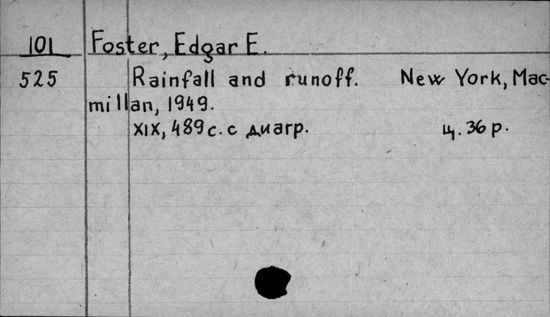 101 Foster, Edgar E.
525 Rainfall and runoff. New York, Mac-
millan, 1949.
XIX, 489 с. с диагр. ц. 36 р.